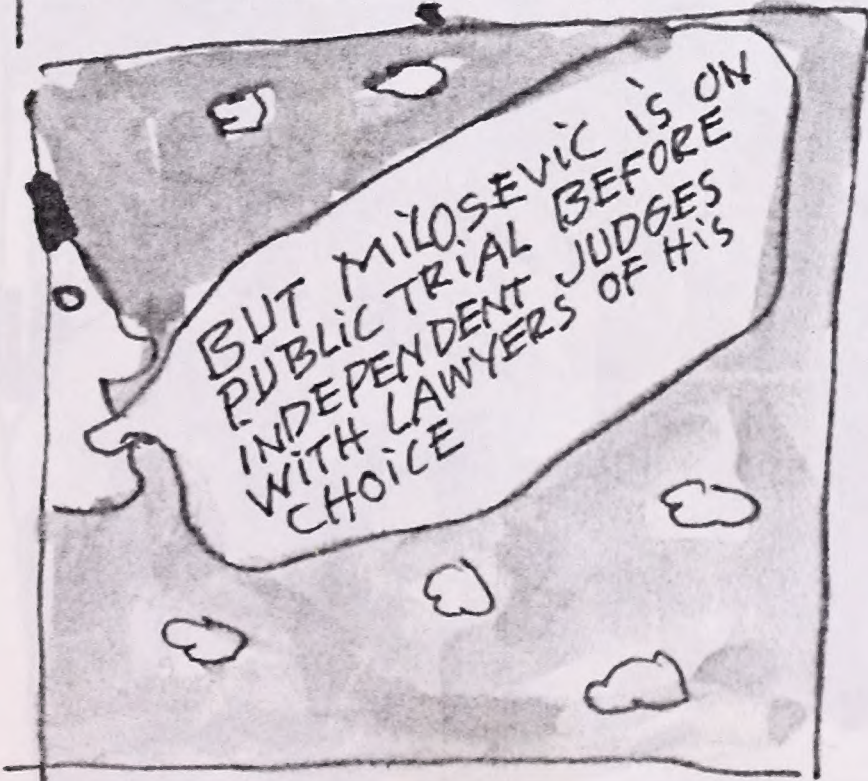 BUT MiLOSEViC iS ON
PUBLiC TRiAL BEFORE
iNDEPENDENT JUDGES
WiTH LAWYERS OF HiS
CHOiCE